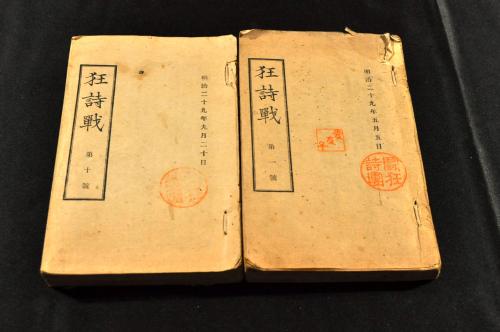 明治二十九年五月五日
狂詩戰
第一號
鬪狂
詩團
明治二十九年九月二十日
狂詩戰
第十號